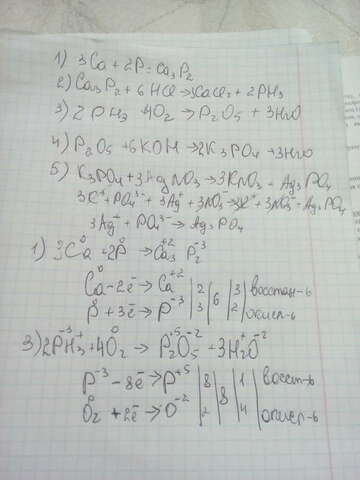 1) 3Ca + 2P = Ca₃P₂
2) Ca₃P₂ + 6HCl → 3CaCl₂ + 2PH₃
3) 2PH₃ 4O₂ → P₂O₅ + 3H₂O
4) P₂O₅ + 6KOH → 2K₃PO₄ + 3H₂O
5) K₃PO₄ + 3AgNO₃ → 3KNO₃ + Ag₃PO₄
3K⁺ + PO₄³⁻ + 3Ag⁺ + 3NO₃⁻ → 3K⁺ + 3NO₃⁻ + Ag₃PO₄
3Ag⁺ + PO₄³⁻ → Ag₃PO₄
1) 3Ca⁰ + 2P⁰ → Ca₃⁺²P₂⁻³
Ca⁰ - 2ē → Ca⁺² | 2 | 6 | 3 | восстан-ь
P⁰ + 3ē → P⁻³ | 3 | 2 | окисл-ь
3) 2P⁻³H₃⁺ + 4O₂⁰ → P₂⁺⁵O₅⁻² + 3H₂⁺O⁻²
P⁻³ - 8ē → P⁺⁵ | 8 | 8 | 1 | восст-ь
O₂⁰ + 2ē → O⁻² | 2 | 4 | окисл-ь